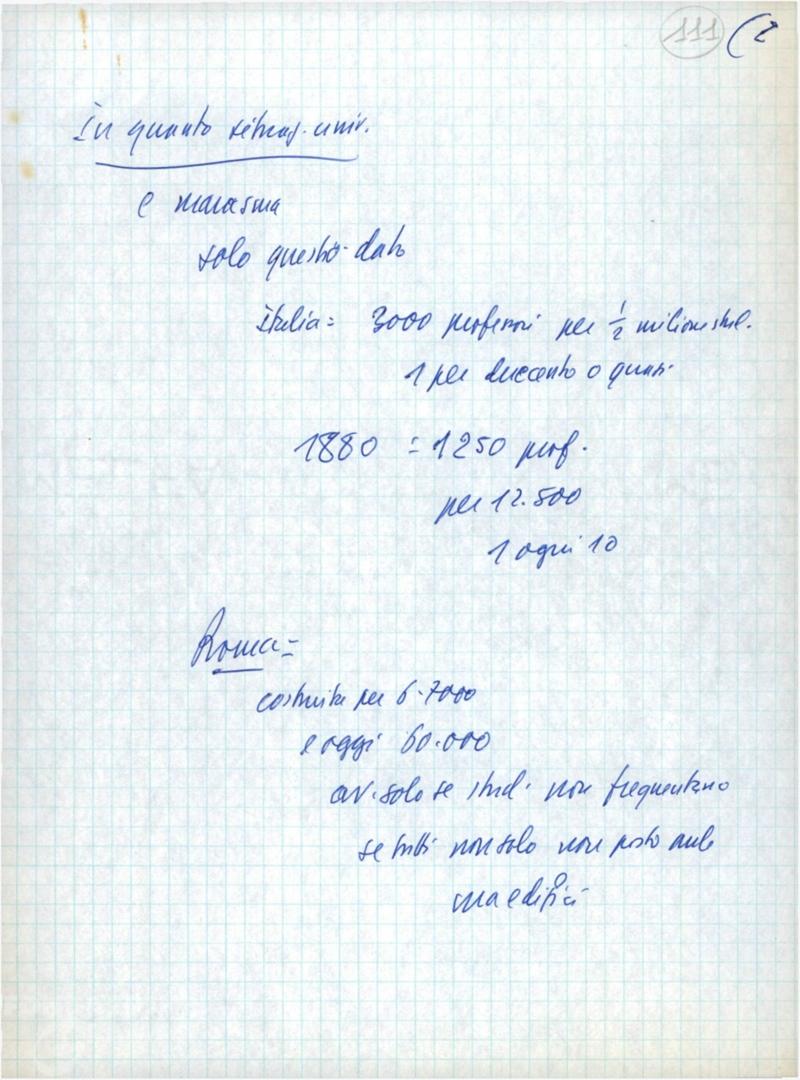 111 (2
In quanto situaz. univ.
e marasma
solo questo dato
Italia = 3000 professori per 1/2 milione stud.
1 per duecento o quasi
1880 = 1250 prof.
per 12.500
1 ogni 10
Roma =
costruita per 6-7000
e oggi 60.000
av. solo se stud. non frequentano
se tutti non solo non posto aule
ma edifici